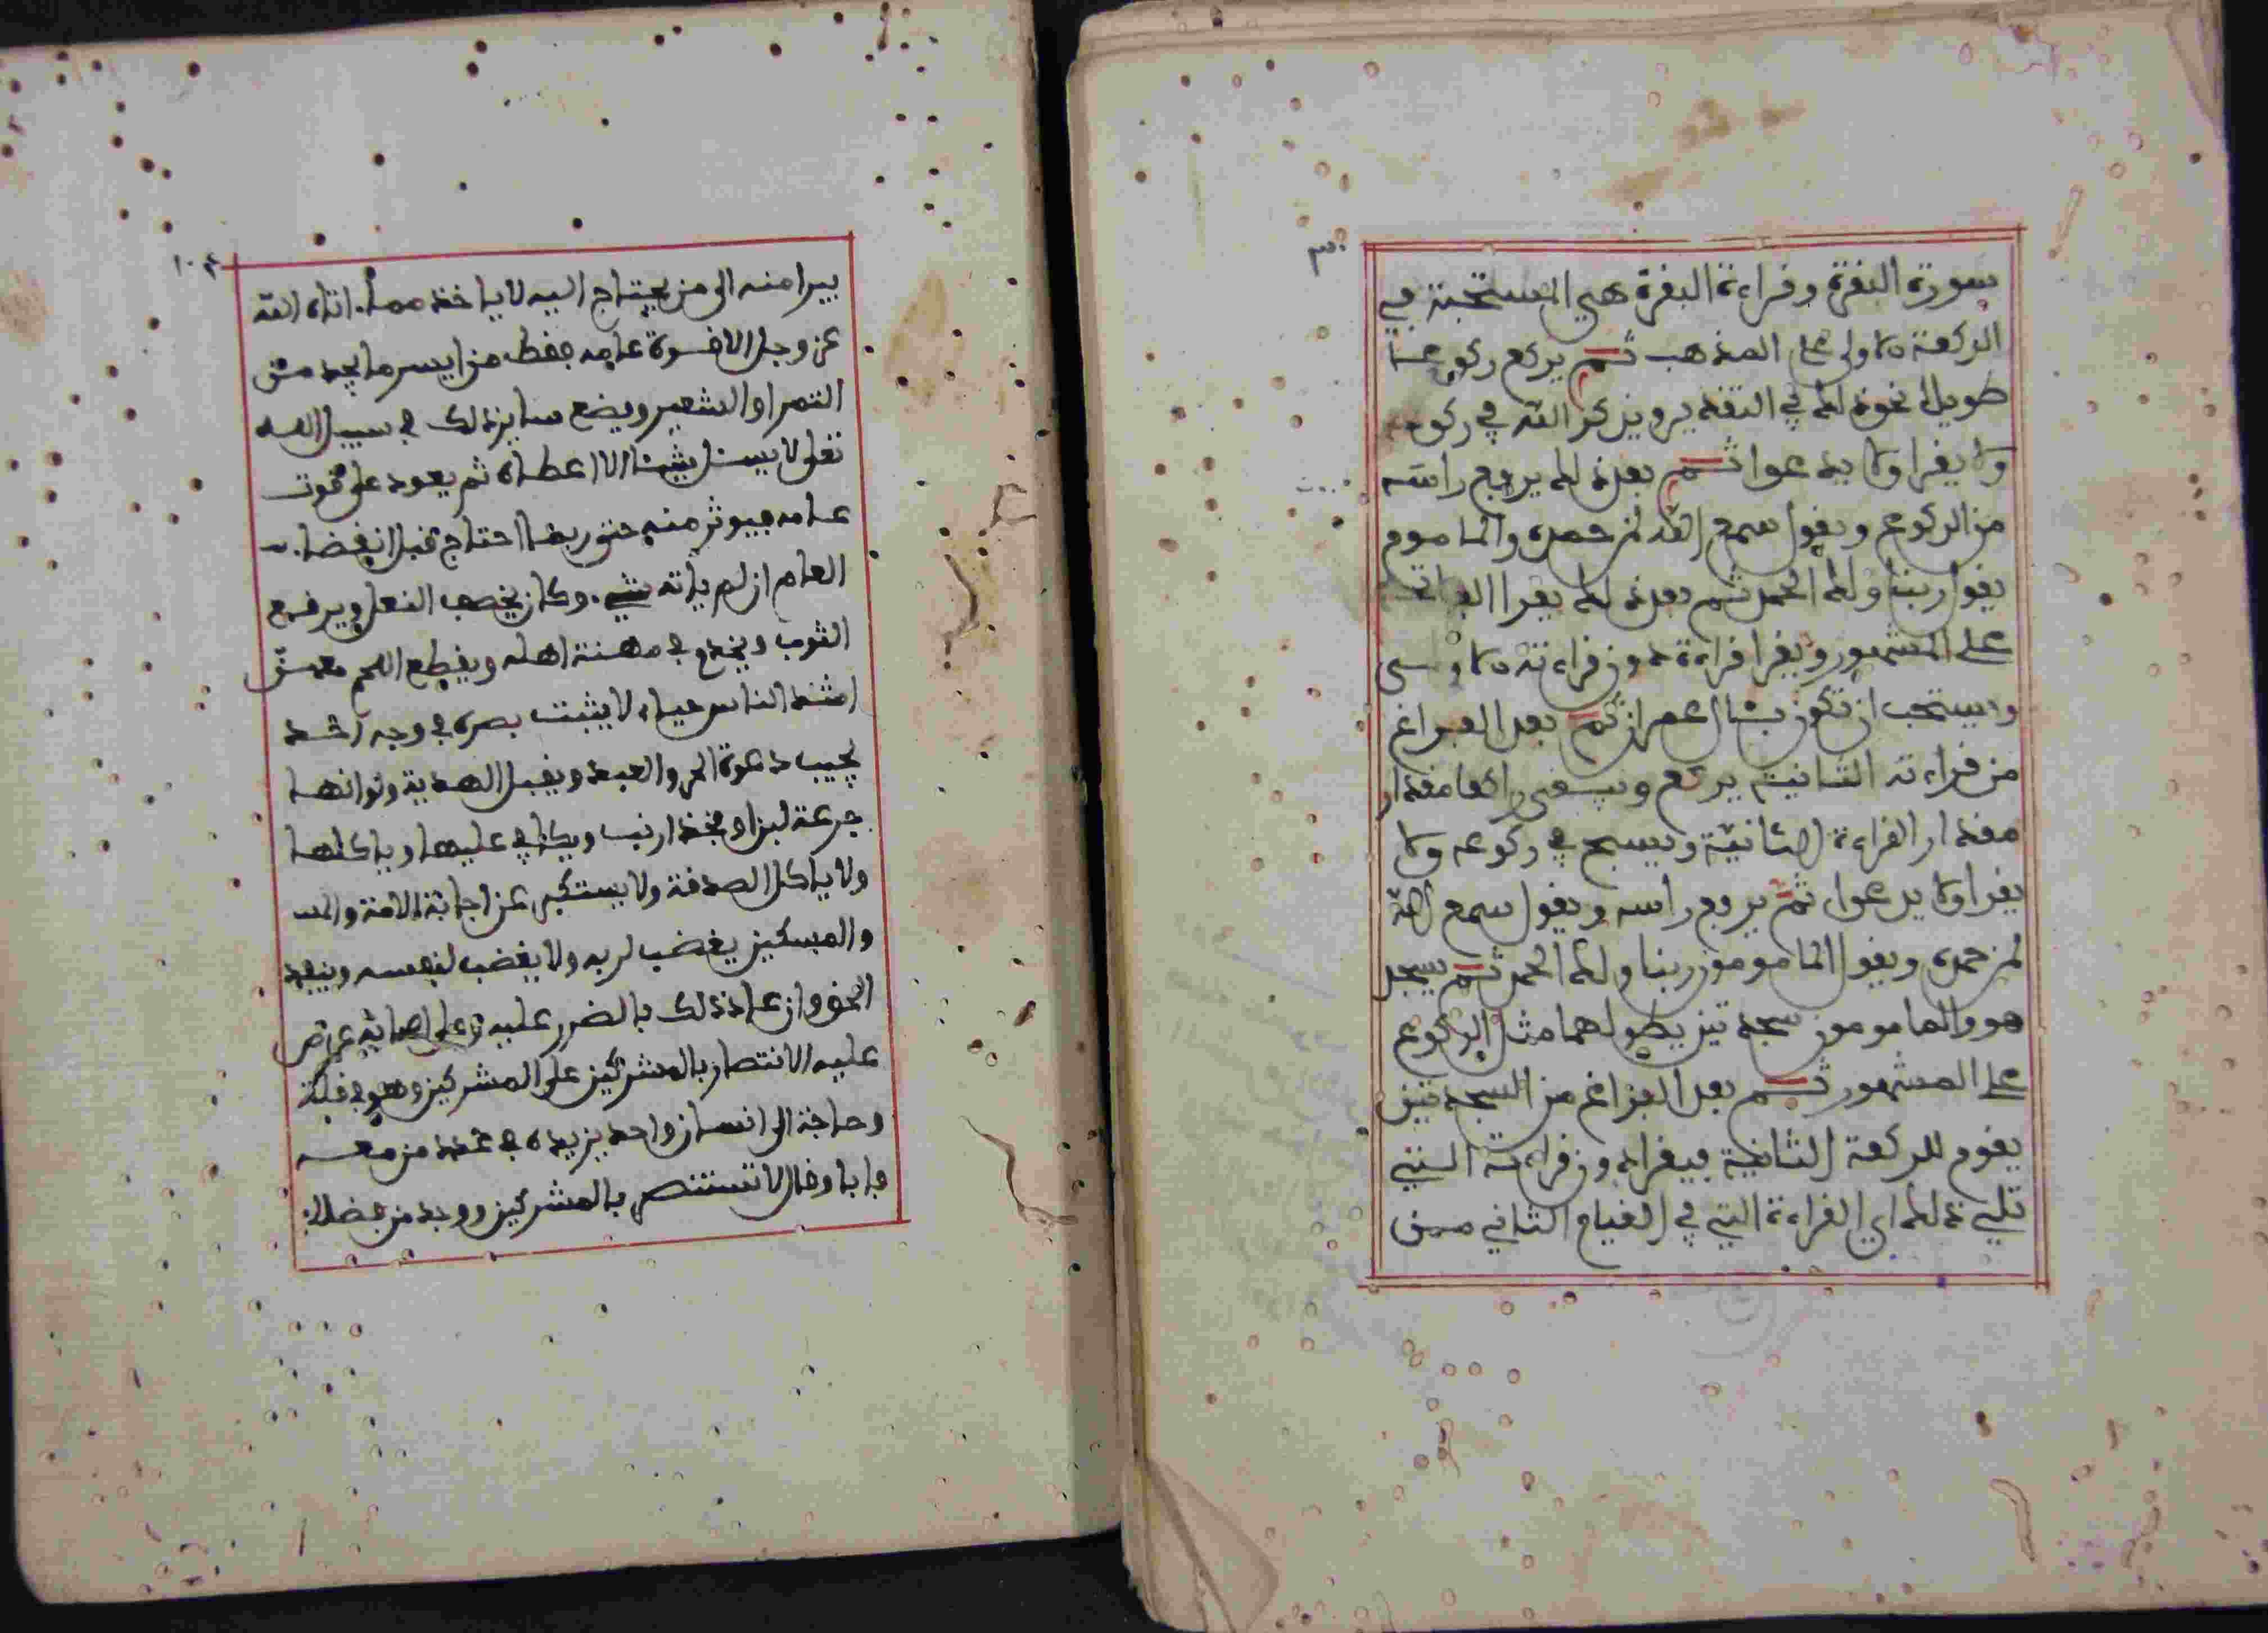 سورة البقرة وقراءة البقرة هي المستحبة في
الركعة الاولى على المذهب ثم يركع ركوعا
طويلا نحو ذلك في التقدير ويذكر الله في ركوعه
ولا يقرا ولا يدعوا ثم بعد ذلك يرفع راسه
من الركوع ويقول سمع الله لمن حمده والماموم
يقول ربنا ولك الحمد ثم بعد ذلك يقرا الفاتحة
على المشهور ويقرا قراءة دون قراءته الاولى
ويستحب ان تكون بئال عمران ثم بعد الفراغ
من قراءته الثانية يركع ويبقى راكعا مقدار
مقدار القراءة الثانية ويسبح في ركوعه ولا
يقرا ولا يدعوا ثم يرفع راسه ويقول سمع الله
لمن حمده ويقول المامومون ربنا ولك الحمد ثم يسجد
هو والمامومون سجدتين يطولهما مثل الركوع
على المشهور ثم بعد الفراغ من السجدتين
يقوم للركعة الثانية فيقرا دون قراءته التي
تلي ذلك اي القراءة التي في القيام الثاني من
يبرا منه الى من يحتاج اليه لا ياخذ مما اتاه الله
عز وجل الا قوة عامه فقط من ايسر ما يجد من
التمر او الشعير ويضع ساير ذلك في سبيل الله
تعلى لا يسئل شيئا الا اعطاه ثم يعود على قوت
عامه فيوثر منه حتى ربما احتاج قبل انقضاء
العام ان لم ياته شيء وكان يخصف النعل ويرفع
الثوب ويخدم في مهنة اهله ويقطع اللحم معهن
اشد الناس حياء لا يثبت بصره في وجه احد
يجيب دعوة الحر والعبد ويقبل الهدية ولو انها
جرعة لبن او فخذ ارنب ويكافي عليها وياكلها
ولا ياكل الصدقة ولا يستكبر عن اجابة الامة والمس
والمسكين يغضب لربه ولا يغضب لنفسه وينفذ
الحق وان عاد ذلك بالضرر عليه وعلى اصحابه عرض
عليه الانتصار بالمشركين على المشركين وهو في قلة
وحاجة الى انسان واحد يزيده في عدد من معه
فابا وقال لا نستنصر بالمشركين ووجد من فضلاء